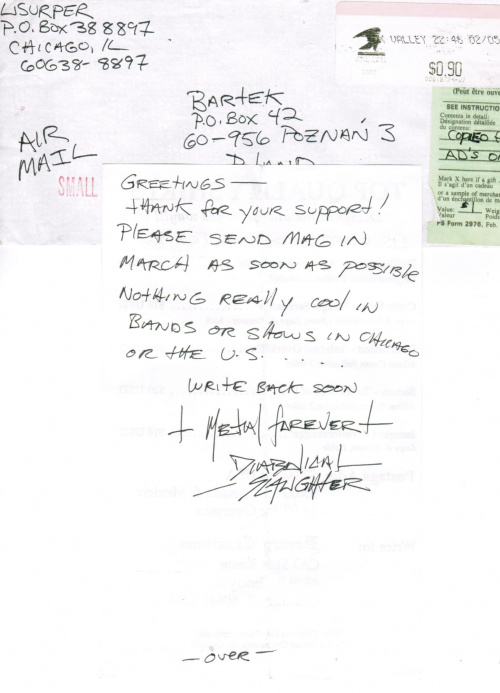 USURPER
P.O. BOX 388897
CHICAGO, IL
60638-8897
VALLEY, 22:45 02/05
$0.90
BARTEK
P.O. BOX 42
60-956 POZNAŃ 3
AIR
MAIL
SMALL
(Peut être ouve
SEE INSTRUCTIO
Contents in detail:
Désignation détaillée
du contenu:
COPIED
AD'S O
Mark X here if a gift
Il s'agit d'un cadeau
or a sample of merchan
d'un échantillon de m
Value: $1 Weig
Valeur Poids
PS Form 2976, Feb.
GREETINGS
THANK for your SUPPORT!
PLEASE SEND MAG IN
MARCH AS SOON AS POSSIBLE
NOTHING REALLY COOL IN
BANDS OR SHOWS IN CHICAGO
OR THE U.S. . . . . .
WRITE BACK SOON
METAL FOREVER
DIABOLICAL
SLAUGHTER
- OVER -